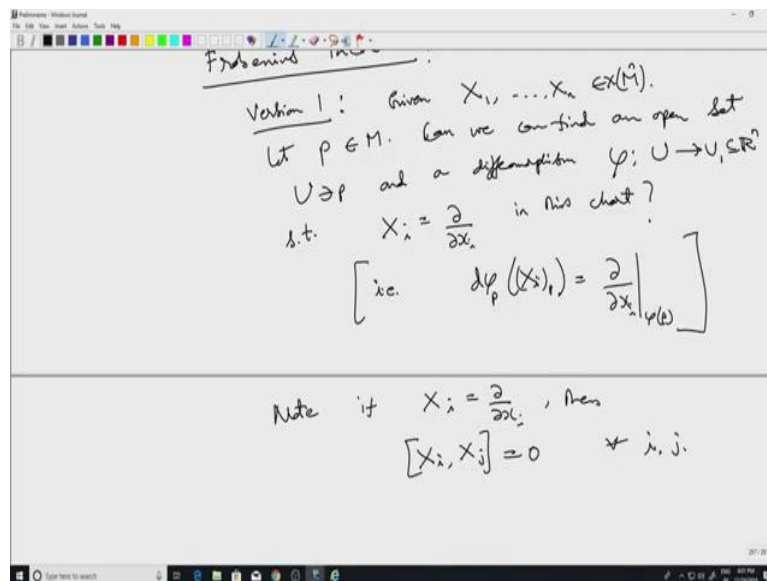 Preliminaries - Windows Journal
File Edit View Insert Actions Tools Help
Frobenius
Version 1 : Given X₁, .... Xₙ ∈ X(M̂).
Let p ∈ M. Can we can find an open set
U∋p and a diffeomorphism φ: U → U₁ ⊆ ℝⁿ
s.t. Xᵢ = ∂/∂xᵢ in this chart?
[ i.e. dφₚ((Xᵢ)ₚ) = ∂/∂xᵢ|φ(p) ]
Note if Xᵢ = ∂/∂xᵢ, then
[Xᵢ, Xⱼ] = 0 ∀ i, j.
Type here to search